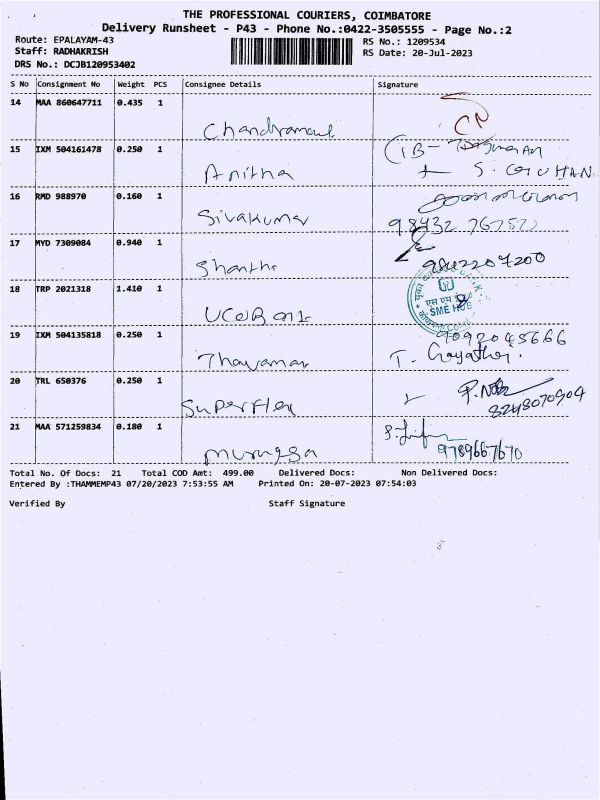 THE PROFESSIONAL COURIERS, COIMBATORE
Delivery Runsheet - P43 - Phone No.:0422-3505555 - Page No.:2
Route: EPALAYAM-43
RS No.: 1209534
Staff: RADHAKRISH
RS Date: 20-Jul-2023
DRS No.: DCJB120953402
S No Consignment No Weight PCS Consignee Details Signature
14 MAA 860647711 0.435 1
CN
Chandramoul
15 IXM 504161478 0.250 1
Anitha
S. GUHAN
16 RMD 988970 0.160 1
Sivakumar
98432 76752
17 MYD 7309084 0.940 1
Shantha
9842207200
18 TRP 2021318 1.410 1
UCO Bank
SME HUB
19 IXM 504135818 0.250 1
9092045666
Thayaman T. Gayathri.
20 TRL 650376 0.250 1
Superflex
8248070904
21 MAA 571259834 0.180 1
Murugesa
9789667670
Total No. Of Docs: 21 Total COD Amt: 499.00 Delivered Docs: Non Delivered Docs:
Entered By :THAMMEMP43 07/20/2023 7:53:55 AM Printed On: 20-07-2023 07:54:03
Verified By Staff Signature